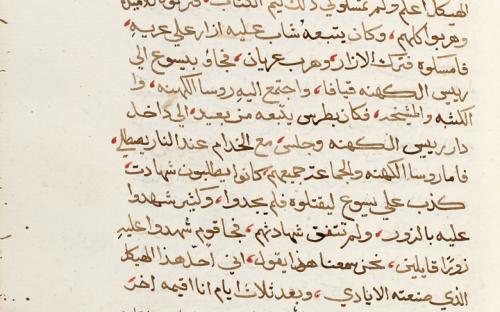 الهيكل اعلم ولم تمسكوني ذلك ليتم الكتاب، فتركوه تلاميذه
وهربوا كلهم، وكان يتبعه شاب عليه ازار علي عريه
فامسكوه فترك الازار، وهرب عريان، فجاوُ بيسوع الي
رييس الكهنه قيافا، واجتمع اليه روسا الكهنه، وا
الكتبه والمشيخه، فكان بطرس يتبعه من بعيد، الي داخل
دار رييس الكهنه وجلس، مع الخدام عند النار يصطلي،
فاما روسا الكهنه والجماعة جميعهم، كانوا يطلبون شهادت
كذب علي يسوع ليقتلوه فلم يجدوا، وكثير شهدوا
عليه بالزور، ولم تتفق شهادتهم، فجا قوم شهدوا عليه
زورًا قايلين، نحن سمعنا هذا يقول، اني احل هذا الهيكل
الذي صنعته الايادي، وبعد ثلاث ايام انا اقيمه اخر